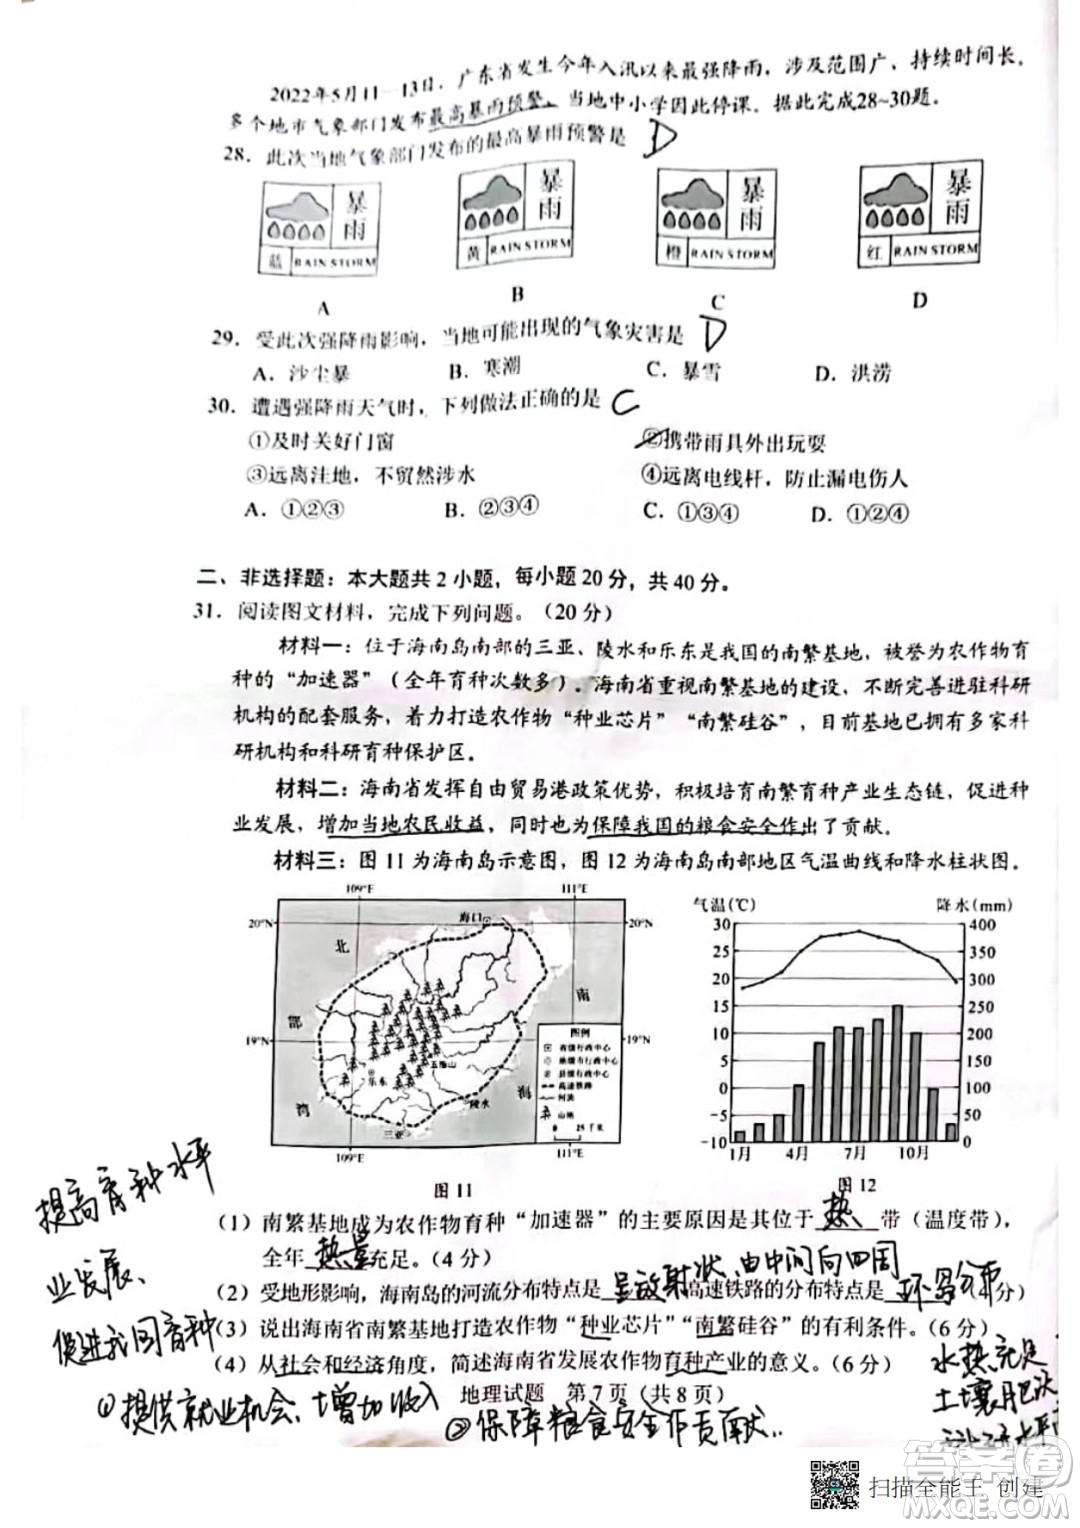 2022年5月11—13日，广东省发生今年入汛以来最强降雨，涉及范围广、持续时间长，
多个地市气象部门发布最高暴雨预警。当地中小学因此停课。据此完成28~30题。
28．此次当地气象部门发布的最高暴雨预警是 D
暴雨 蓝 RAIN STORM
暴雨 黄 RAIN STORM
暴雨 橙 RAIN STORM
暴雨 红 RAIN STORM
A B C D
29．受此次强降雨影响，当地可能出现的气象灾害是 D
A．沙尘暴 B．寒潮 C．暴雪 D．洪涝
30．遭遇强降雨天气时，下列做法正确的是 C
①及时关好门窗 ②携带雨具外出玩耍
③远离洼地，不贸然涉水 ④远离电线杆，防止漏电伤人
A．①②③ B．②③④ C．①③④ D．①②④
二、非选择题：本大题共2小题，每小题20分，共40分。
31．阅读图文材料，完成下列问题。（20分）
材料一：位于海南岛南部的三亚、陵水和乐东是我国的南繁基地，被誉为农作物育
种的“加速器”（全年育种次数多）。海南省重视南繁基地的建设，不断完善进驻科研
机构的配套服务，着力打造农作物“种业芯片”“南繁硅谷”，目前基地已拥有多家科
研机构和科研育种保护区。
材料二：海南省发挥自由贸易港政策优势，积极培育南繁育种产业生态链，促进种
业发展，增加当地农民收益，同时也为保障我国的粮食安全作出了贡献。
材料三：图11为海南岛示意图，图12为海南岛南部地区气温曲线和降水柱状图。
109°E 111°E
20°N 20°N
19°N 19°N
109°E 111°E
海口
北
部
湾
南
海
五指山
乐东
陵水
三亚
图例
省级行政中心
地级市行政中心
县级行政中心
高速铁路
河流
山地
0 25千米
图11
气温(℃) 降水(mm)
30 400
25 350
20 300
15 250
10 200
5 150
0 100
-5 50
-10 0
1月 4月 7月 10月
图12
提高育种水平
业发展、
促进我国育种
（1）南繁基地成为农作物育种“加速器”的主要原因是其位于 热 带（温度带），
全年 热量 充足。（4分）
（2）受地形影响，海南岛的河流分布特点是 呈放射状、由中间向四周 高速铁路的分布特点是 环岛分布 分）
（3）说出海南省南繁基地打造农作物“种业芯片”“南繁硅谷”的有利条件。（6分）
（4）从社会和经济角度，简述海南省发展农作物育种产业的意义。（6分）
水热充足
土壤肥沃
地理试题 第7页（共8页）
①提供就业机会、增加收入
②保障粮食安全作贡献..
扫描全能王 创建
答案圈
MXQE.COM